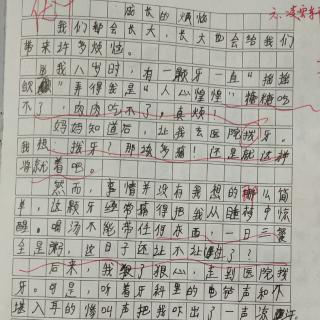 优
成长的烦恼
我们都会长大,长大也会给我们
带来许多烦恼。
我八岁时,有一颗牙一直“摇摇
欲”弄得我是“人心惶惶”糖糖吃
不了,肉肉吃不了,真烦!
妈妈知道后,让我去医院拔牙。
我想:拔牙?那该多痛!还是就这种
将就着吧。
然而,事情并没有我想的那么简
单,这颗牙经常痛得把我从睡梦中惊
醒。喝汤不能带任何东西,一日三餐
全是粥,这日子还让不让过了?
后来,我狠了狠心,走到医院拔
牙。可是,听着牙科里的电钻声和不
堪入耳的惨叫声把我吓出了一声